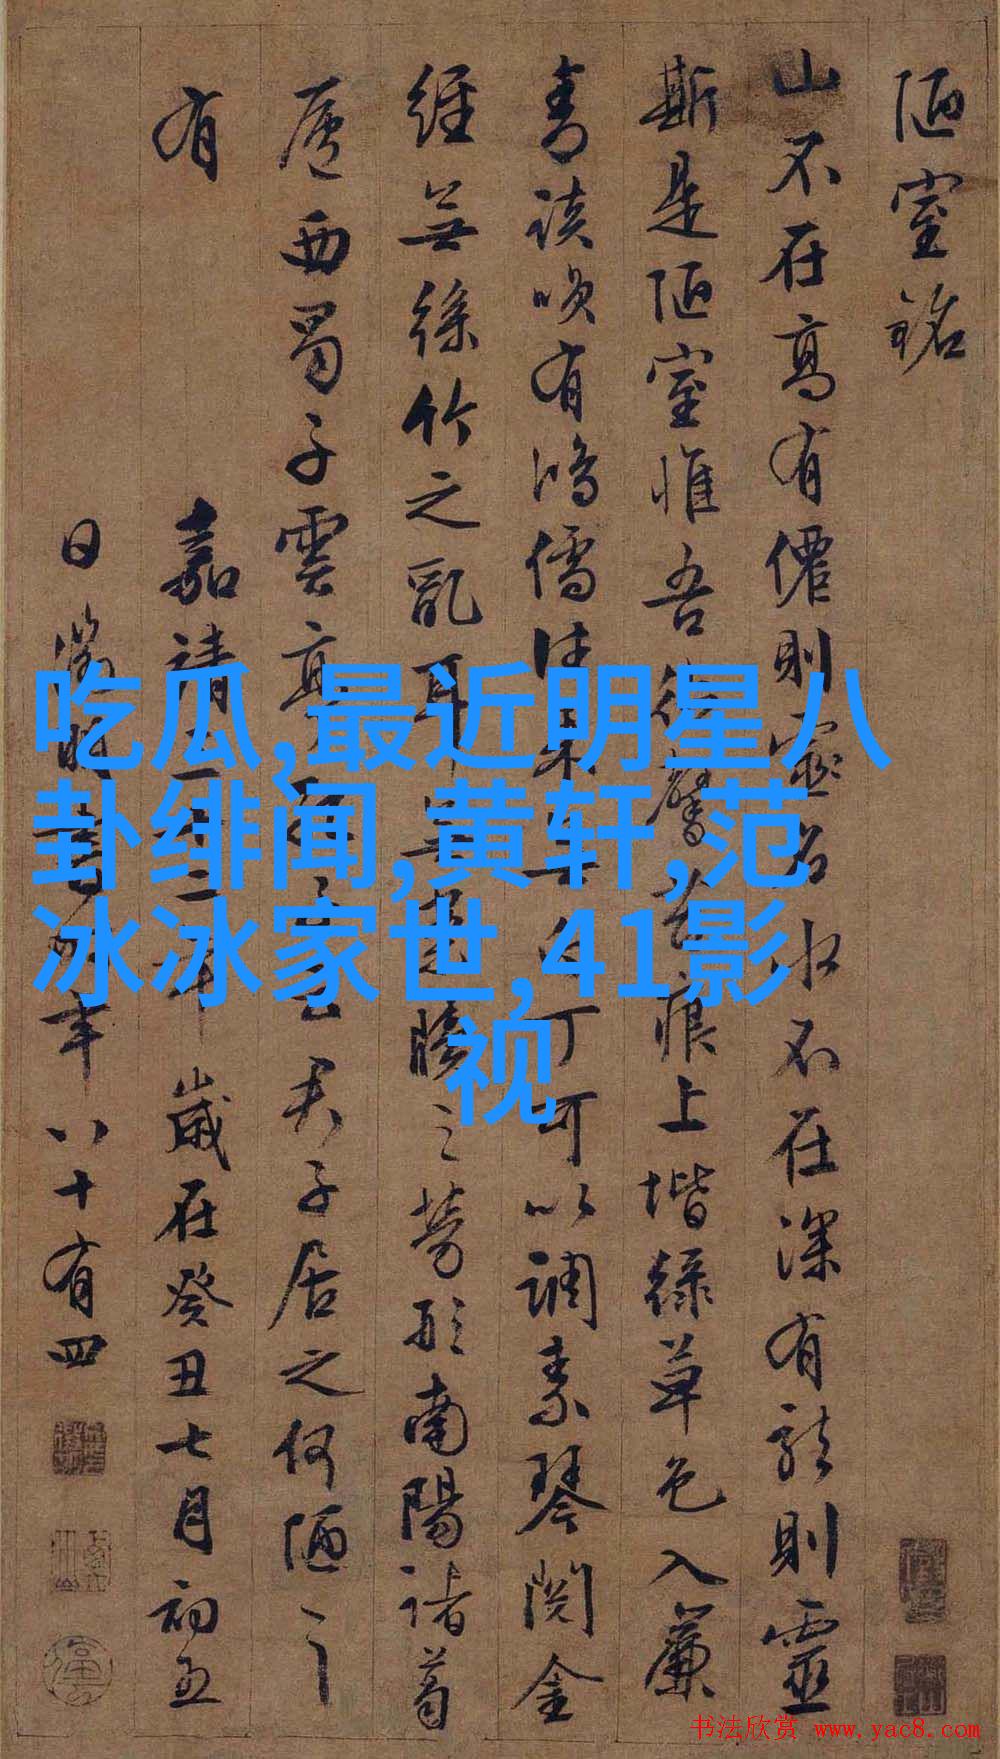 陋室銘
山不在高有僊則靈名水不在深有龍則靈
斯是陋室惟吾德馨苔痕上堦綠草色入簾
青談咲有鴻儒往来無白丁可以調素琴閲金
經無絲竹之亂耳無牘之勞形南陽諸葛
廬西蜀子雲亭子云君子居之何陋之
有
嘉靖二年歲在癸丑七月初五
日徵明書年八十有四
吃瓜,最近明星八
卦绯闻,黄轩,范
冰冰家世,41影
视
书法欣赏 www.yac8.com